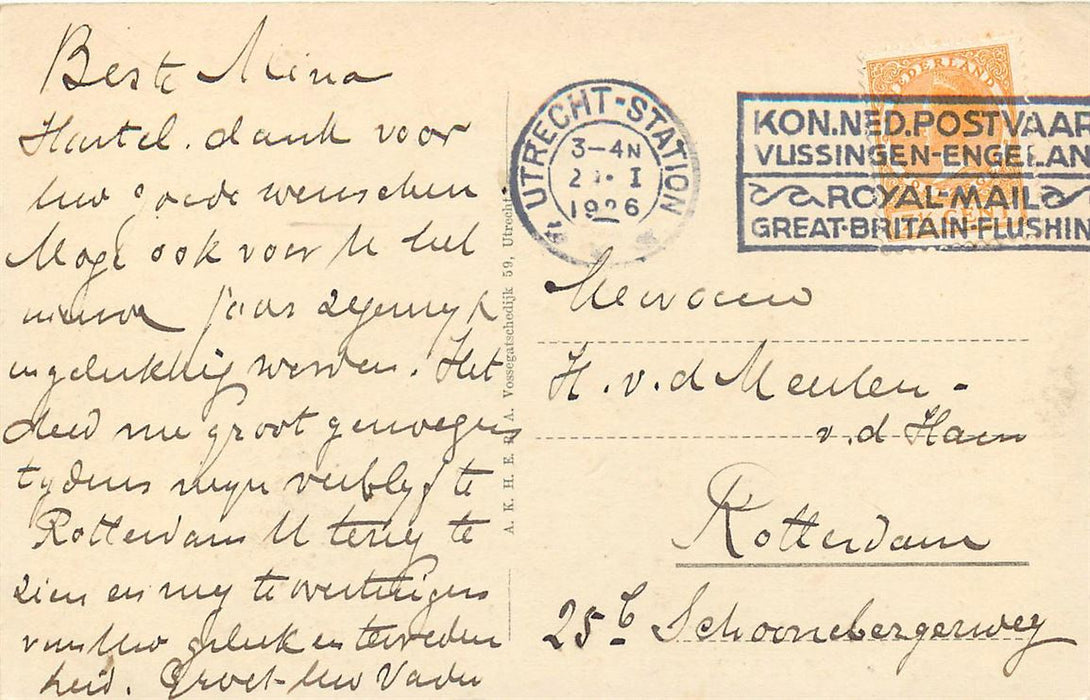 Beste Mina
Hartel. dank voor
Uw goede wenschen
Moge ook voor U het
nieuwe jaar zegenryk
en gelukkig worden. Het
deed me groot genoegen
tydens myn verblyf te
Rotterdam U terug te
zien en my te overtuigen
van Uw geluk en tevreden
heid. Groet - Uw Vader
A. K. H. E. A. Vossegatschedijk 59, Utrecht.
UTRECHT-STATION
3-4N
I
1926
NEDERLAND
7½ CENT
KON.NED.POSTVAAR
VLISSINGEN-ENGELAN
ROYAL-MAIL
GREAT-BRITAIN-FLUSHIN
Mevrouw
H. v. d Meulen -
v. d Ham
Rotterdam
25b Schoonebergerweg